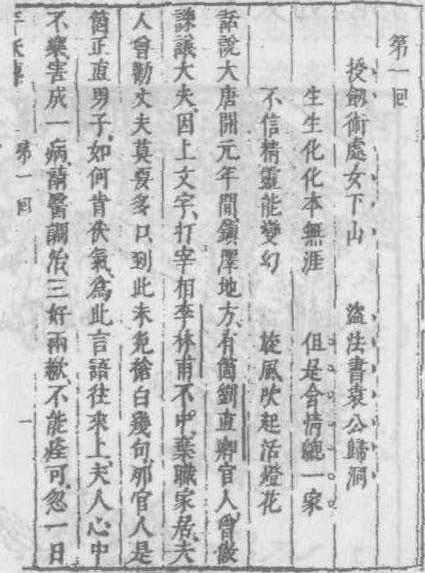 第一回
授劍術處女下山　盜法書袁公歸洞
生生化化本無涯　但是含情總一家
不信精靈能變幻　旋風吹起活燈花
話說大唐開元年間、鎮澤地方、有箇劉直卿官人、曾做
諫議大夫、因上文字、打宰相李林甫不中、棄職家居、夫
人曾勸丈夫莫要多口、到此未免搶白幾句、那官人是
箇正直男子、如何肯伏氣、爲此言語往來上、夫人心中
不樂害成一病、請醫調治、三好兩歉、不能痊可、忽一日
第一回
一